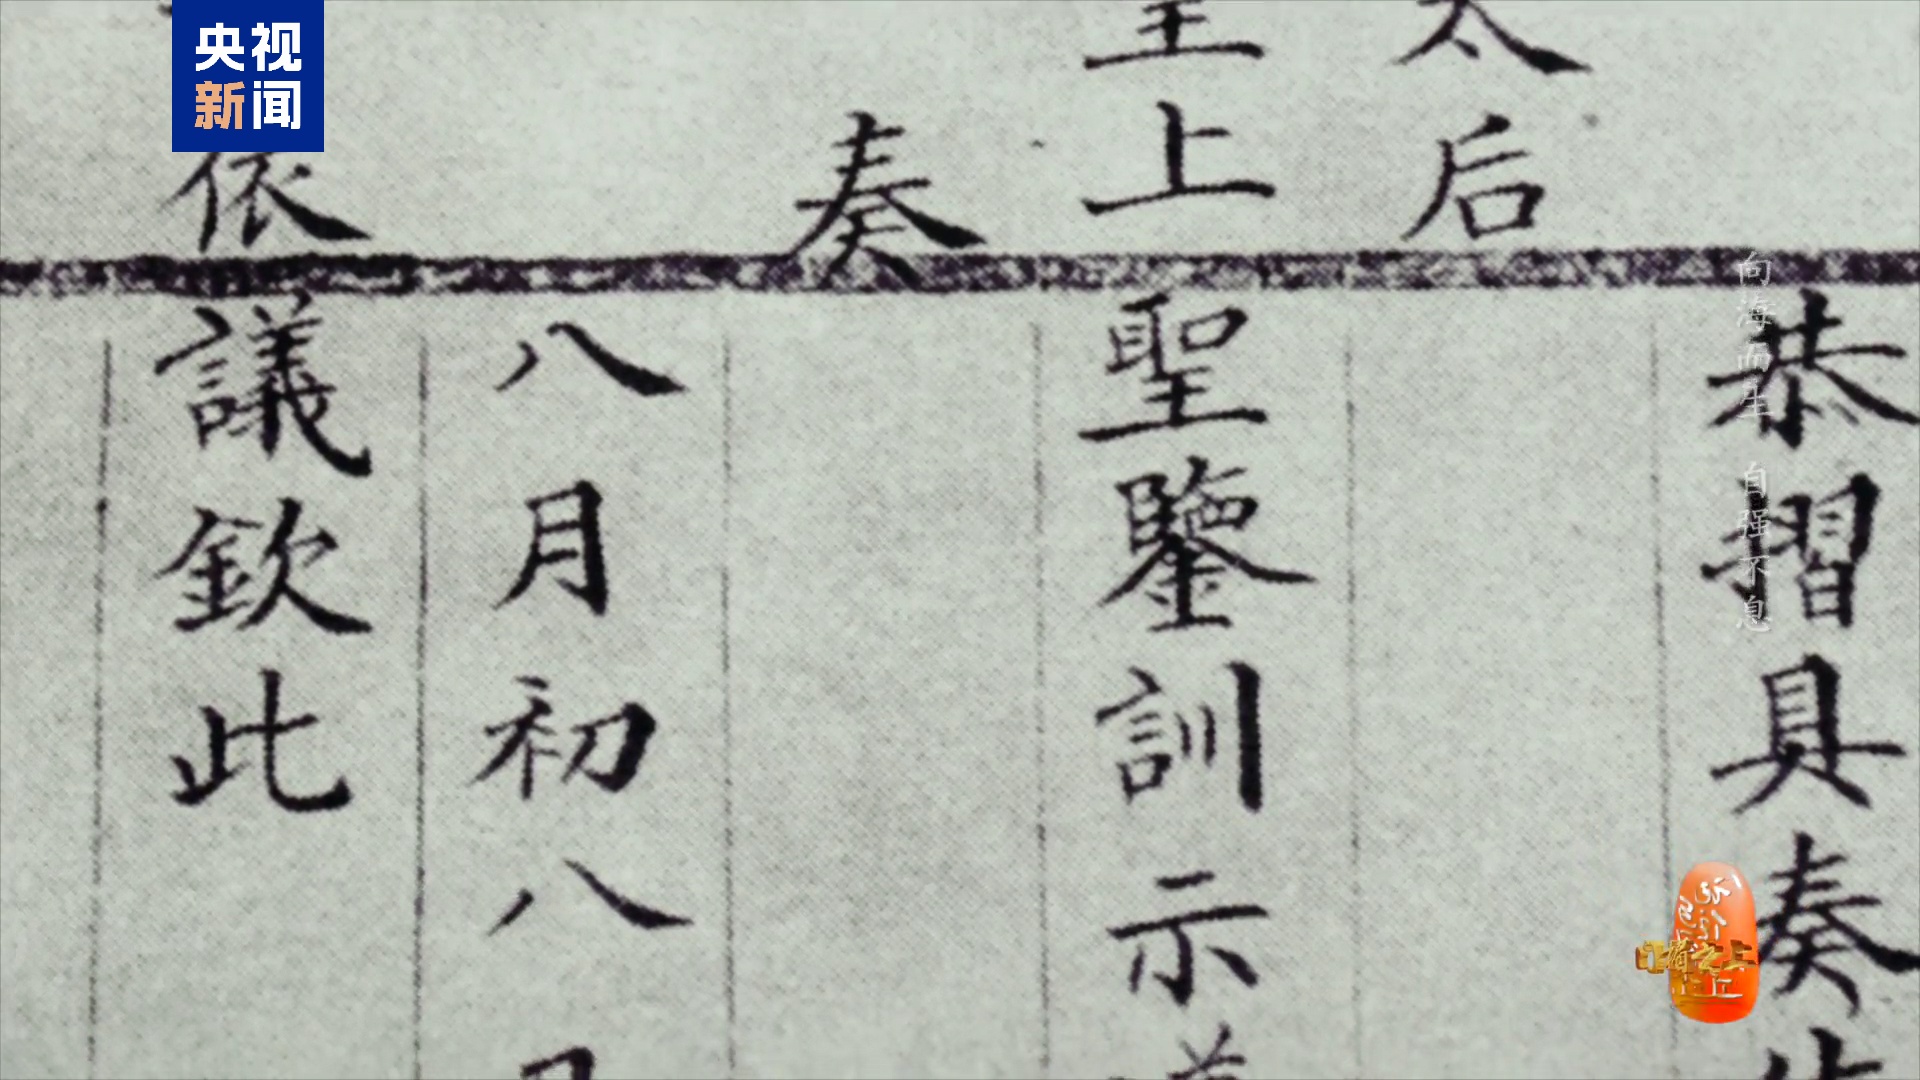 央视
新闻
恭摺具奏
太后
上
聖鑒訓示
奏
八月初八
依
議欽此
向海而生 自强不息